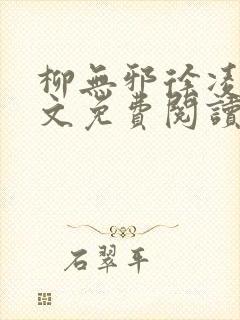 柳無邪徐凌
文免費閱讀
石翠平